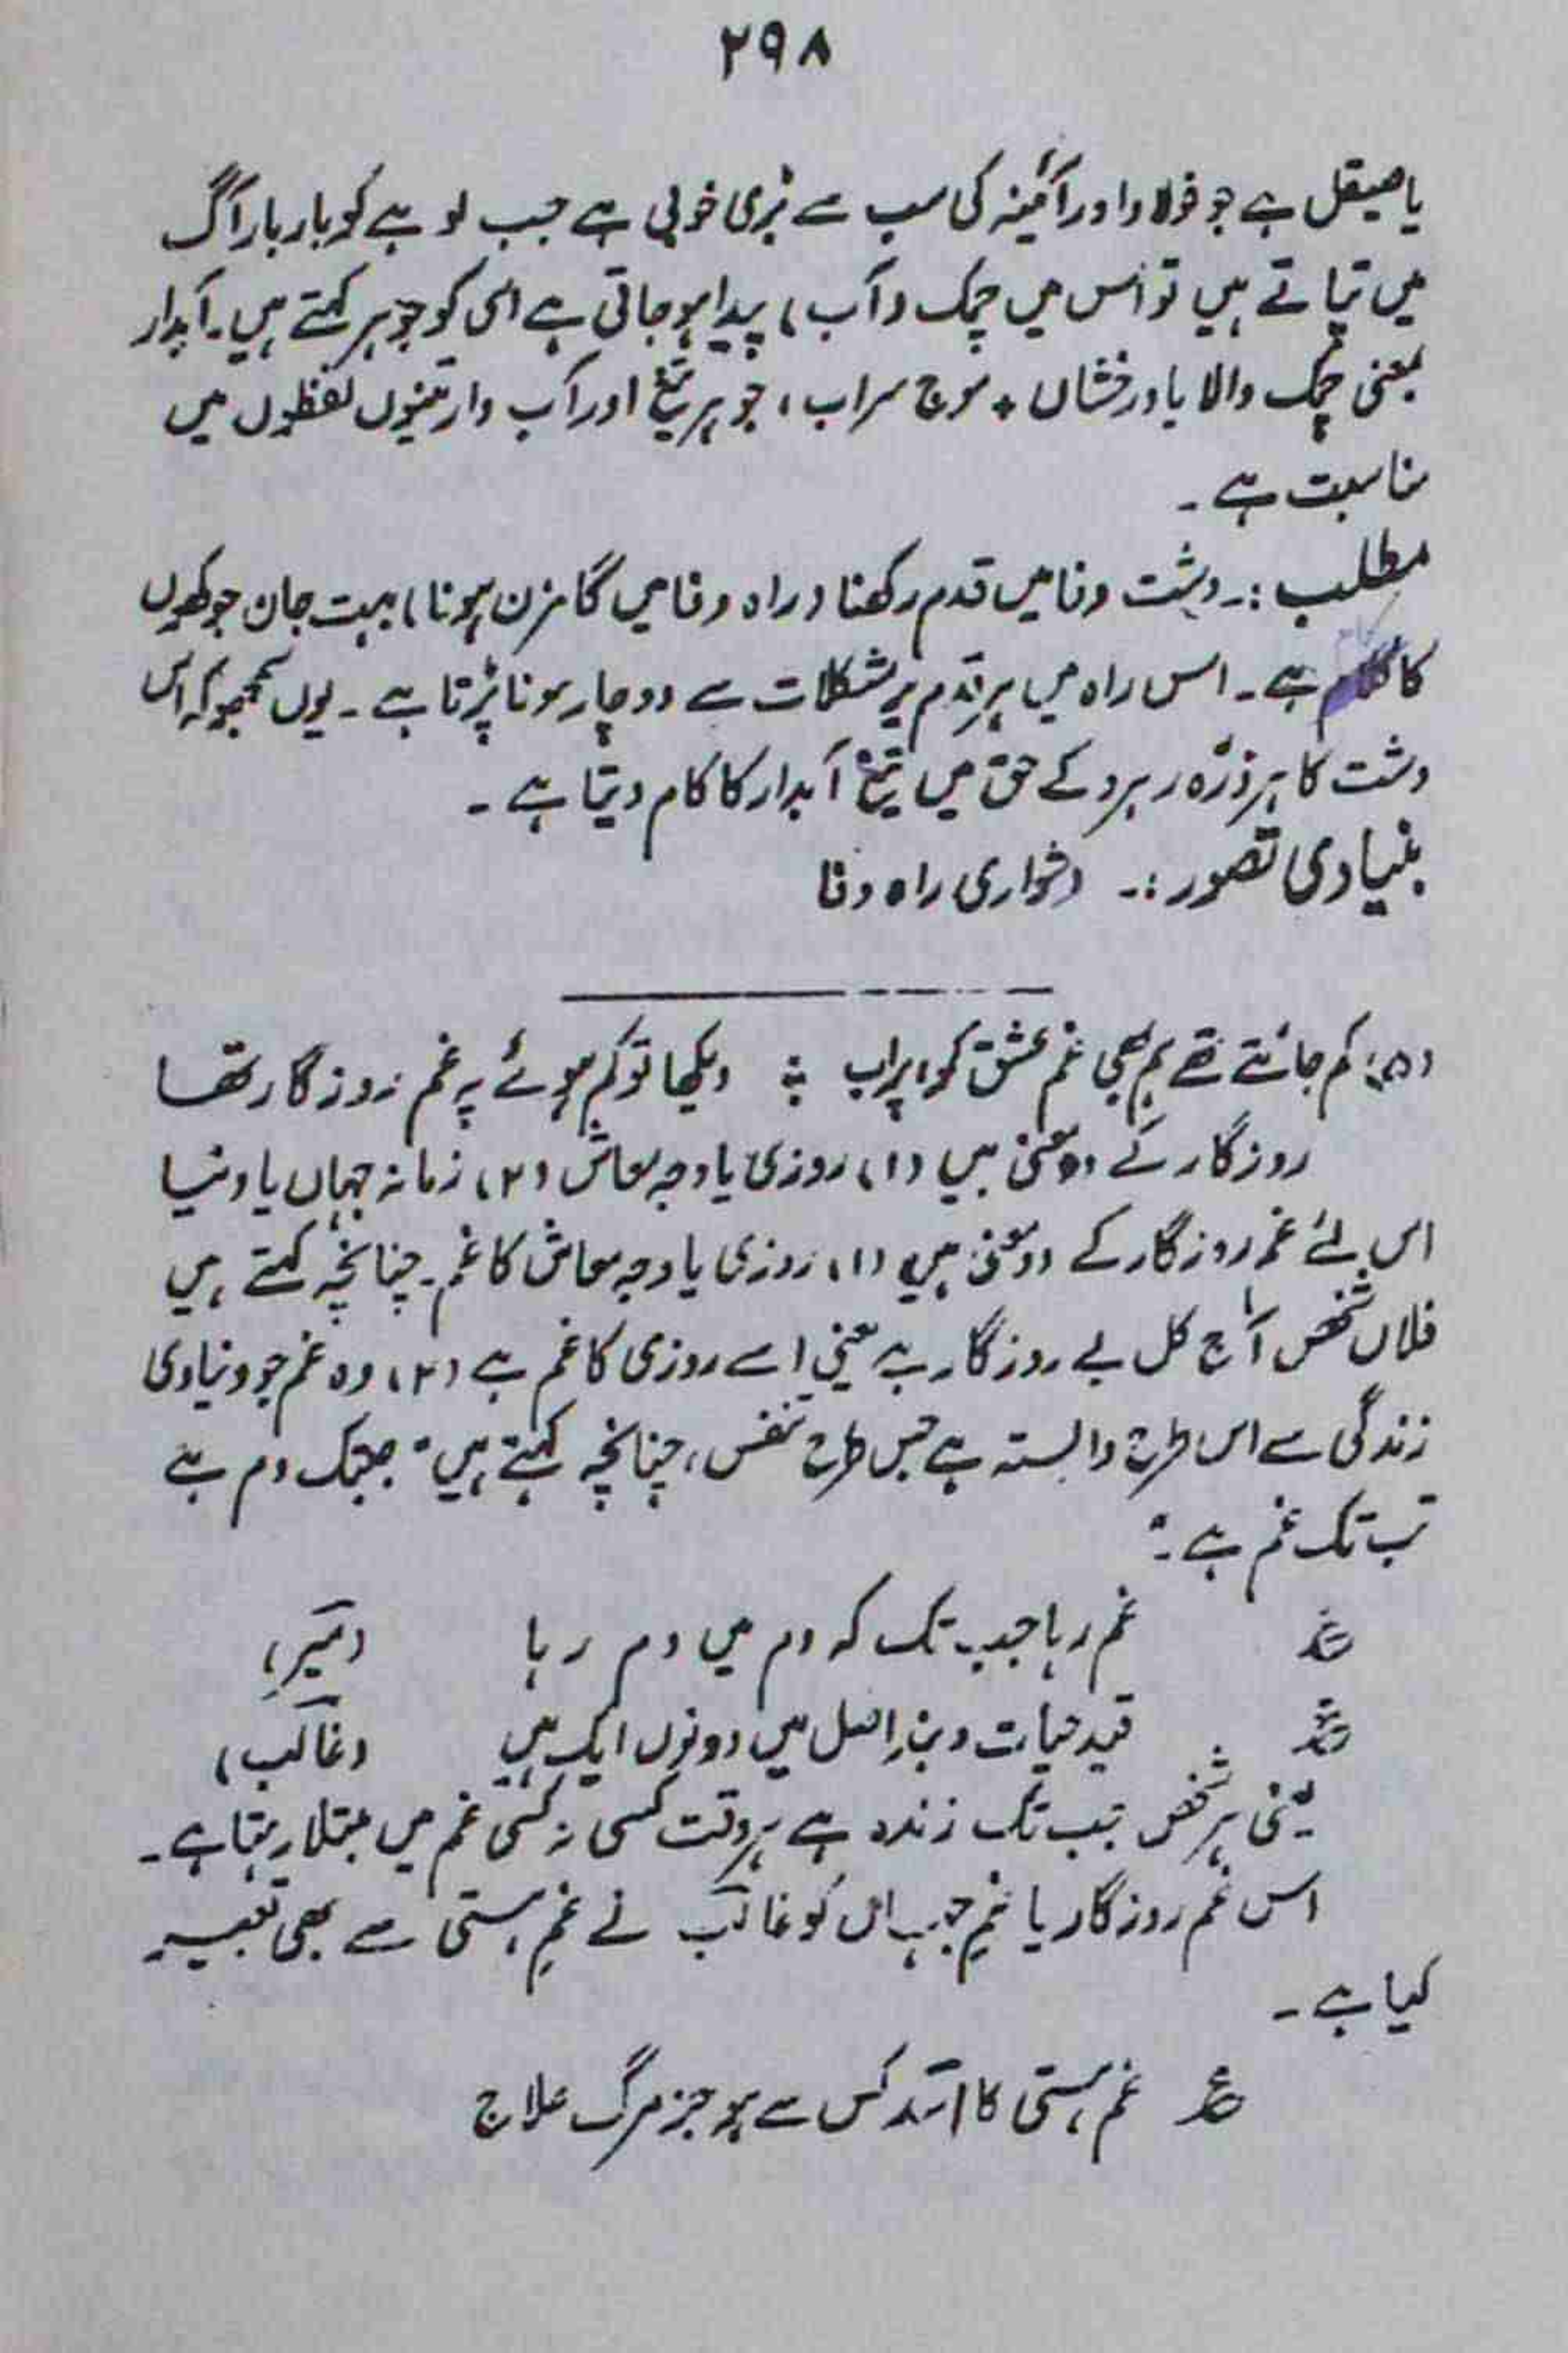 ۲۹۸
یا صیقل ہے جو فولاد اور آئینہ کی سب سے بڑی خوبی ہے جب لوہے کو بار بار آگ
میں تپاتے ہیں تو اس میں چمک (آب) پیدا ہو جاتی ہے اسی کو جوہر کہتے ہیں۔ آبدار
بمعنی چمک والا یا درخشاں + موج سراب، جوہر تیغ اور آب دار تینوں لفظوں میں
مناسبت ہے۔
مطلب :۔ دشت وفا میں قدم رکھنا (راہ وفا میں گامزن ہونا) بہت جان جوکھوں
کا کام ہے۔ اس راہ میں ہر قدم پر مشکلات سے دوچار ہونا پڑتا ہے۔ یوں سمجھو کہ اس
دشت کا ہر ذرّہ رہرو کے حق میں تیغ آبدار کا کام دیتا ہے۔
بنیادی تصور :۔ دشواری راہ وفا
(۵) : کم جانتے تھے ہم بھی غم عشق کو، پر اب ؞ دیکھا تو کم ہوئے پہ غم روزگار تھا
روزگار کے دو معنی ہیں (۱) روزی یا وجہ معاش (۲) زمانہ جہاں یا دنیا
اس لئے غم روزگار کے دو معنی ہیں (۱) روزی یا وجہ معاش کا غم۔ چنانچہ کہتے ہیں
فلاں شخص آج کل بے روزگار ہے یعنی اسے روزی کا غم ہے (۲) وہ غم جو دنیاوی
زندگی سے اس طرح وابستہ ہے جس طرح تنفس، چنانچہ کہتے ہیں "جبتک دم ہے
تب تک غم ہے۔"
ع غم رہا جب تک کہ دم میں دم رہا (میر)
ع قید حیات و بند اصل میں دونوں ایک ہیں (غالب)
یعنی ہر شخص جب تک زندہ ہے ہر وقت کسی نہ کسی غم میں مبتلا رہتا ہے۔
اس غم روزگار یا غمِ جہاں کو غالب نے غمِ ہستی سے بھی تعبیر
کیا ہے۔
ع غم ہستی کا اسد کس سے ہو جز مرگ علاج